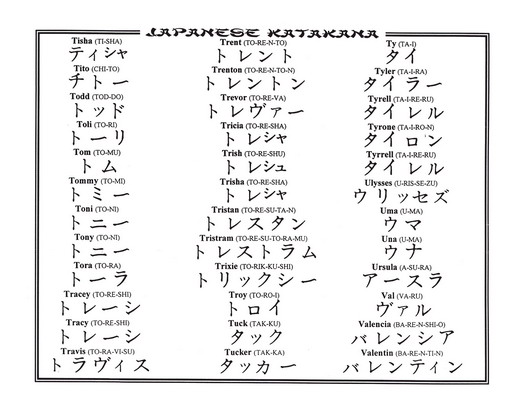 JAPANESE KATAKANA
Tisha (TI-SHA)
ティシャ
Tito (CHI-TO)
チトー
Todd (TOD-DO)
トッド
Toli (TO-RI)
トーリ
Tom (TO-MU)
トム
Tommy (TO-MI)
トミー
Toni (TO-NI)
トニー
Tony (TO-NI)
トニー
Tora (TO-RA)
トーラ
Tracey (TO-RE-SHI)
トレーシ
Tracy (TO-RE-SHI)
トレーシ
Travis (TO-RA-VI-SU)
トラヴィス
Trent (TO-RE-N-TO)
トレント
Trenton (TO-RE-N-TO-N)
トレントン
Trevor (TO-RE-VA)
トレヴァー
Tricia (TO-RE-SHA)
トレシャ
Trish (TO-RE-SHU)
トレシュ
Trisha (TO-RE-SHA)
トレシャ
Tristan (TO-RE-SU-TA-N)
トレスタン
Tristram (TO-RE-SU-TO-RA-MU)
トレストラム
Trixie (TO-RIK-KU-SHI)
トリックシー
Troy (TO-RO-I)
トロイ
Tuck (TAK-KU)
タック
Tucker (TAK-KA)
タッカー
Ty (TA-I)
タイ
Tyler (TA-I-RA)
タイラー
Tyrell (TA-I-RE-RU)
タイレル
Tyrone (TA-I-RO-N)
タイロン
Tyrrell (TA-I-RE-RU)
タイレル
Ulysses (U-RIS-SE-ZU)
ウリッセズ
Uma (U-MA)
ウマ
Una (U-MA)
ウナ
Ursula (A-SU-RA)
アースラ
Val (VA-RU)
ヴァル
Valencia (BA-RE-N-SHI-O)
バレンシア
Valentin (BA-RE-N-TI-N)
バレンティン